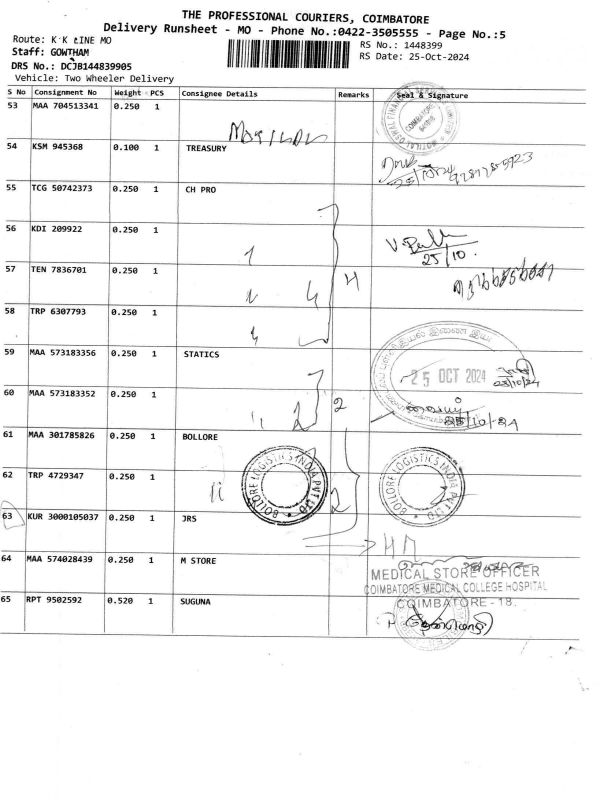 THE PROFESSIONAL COURIERS, COIMBATORE
Delivery Runsheet - MO - Phone No.:0422-3505555 - Page No.:5
Route: K K LINE MO
RS No.: 1448399
Staff: GOWTHAM
RS Date: 25-Oct-2024
DRS No.: DCJB144839905
Vehicle: Two Wheeler Delivery
S No Consignment No Weight PCS Consignee Details Remarks Seal & Signature
53 MAA 704513341 0.250 1
COIMBATORE
54 KSM 945368 0.100 1 TREASURY
55 TCG 50742373 0.250 1 CH PRO
56 KDI 209922 0.250 1
25/10.
57 TEN 7836701 0.250 1
4
58 TRP 6307793 0.250 1
59 MAA 573183356 0.250 1 STATICS
25 OCT 2024
60 MAA 573183352 0.250 1
2 2
61 MAA 301785826 0.250 1 BOLLORE
BOLLORE LOGISTICS INDIA PVT LTD
BOLLORE LOGISTICS INDIA PVT LTD
62 TRP 4729347 0.250 1
2
63 KUR 3000105037 0.250 1 JRS
64 MAA 574028439 0.250 1 M STORE
MEDICAL STORE OFFICER
COIMBATORE MEDICAL COLLEGE HOSPITAL
COIMBATORE - 18.
65 RPT 9502592 0.520 1 SUGUNA